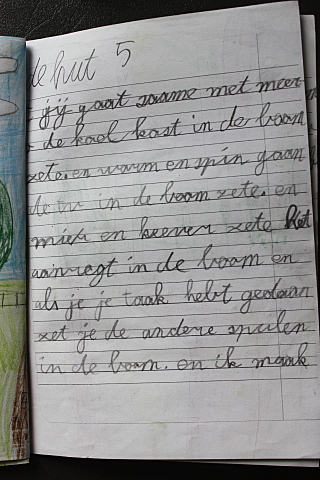 de hut 5
jij gaat saame met meer
de kool kast in de boom
zete. en warm en spin gaan
de tv in de boom zete. en
mier en keever zete het
aanregt in de boom en
als je je taak hebt gedaan
zet je de andere spulen
in de boom. en ik maak